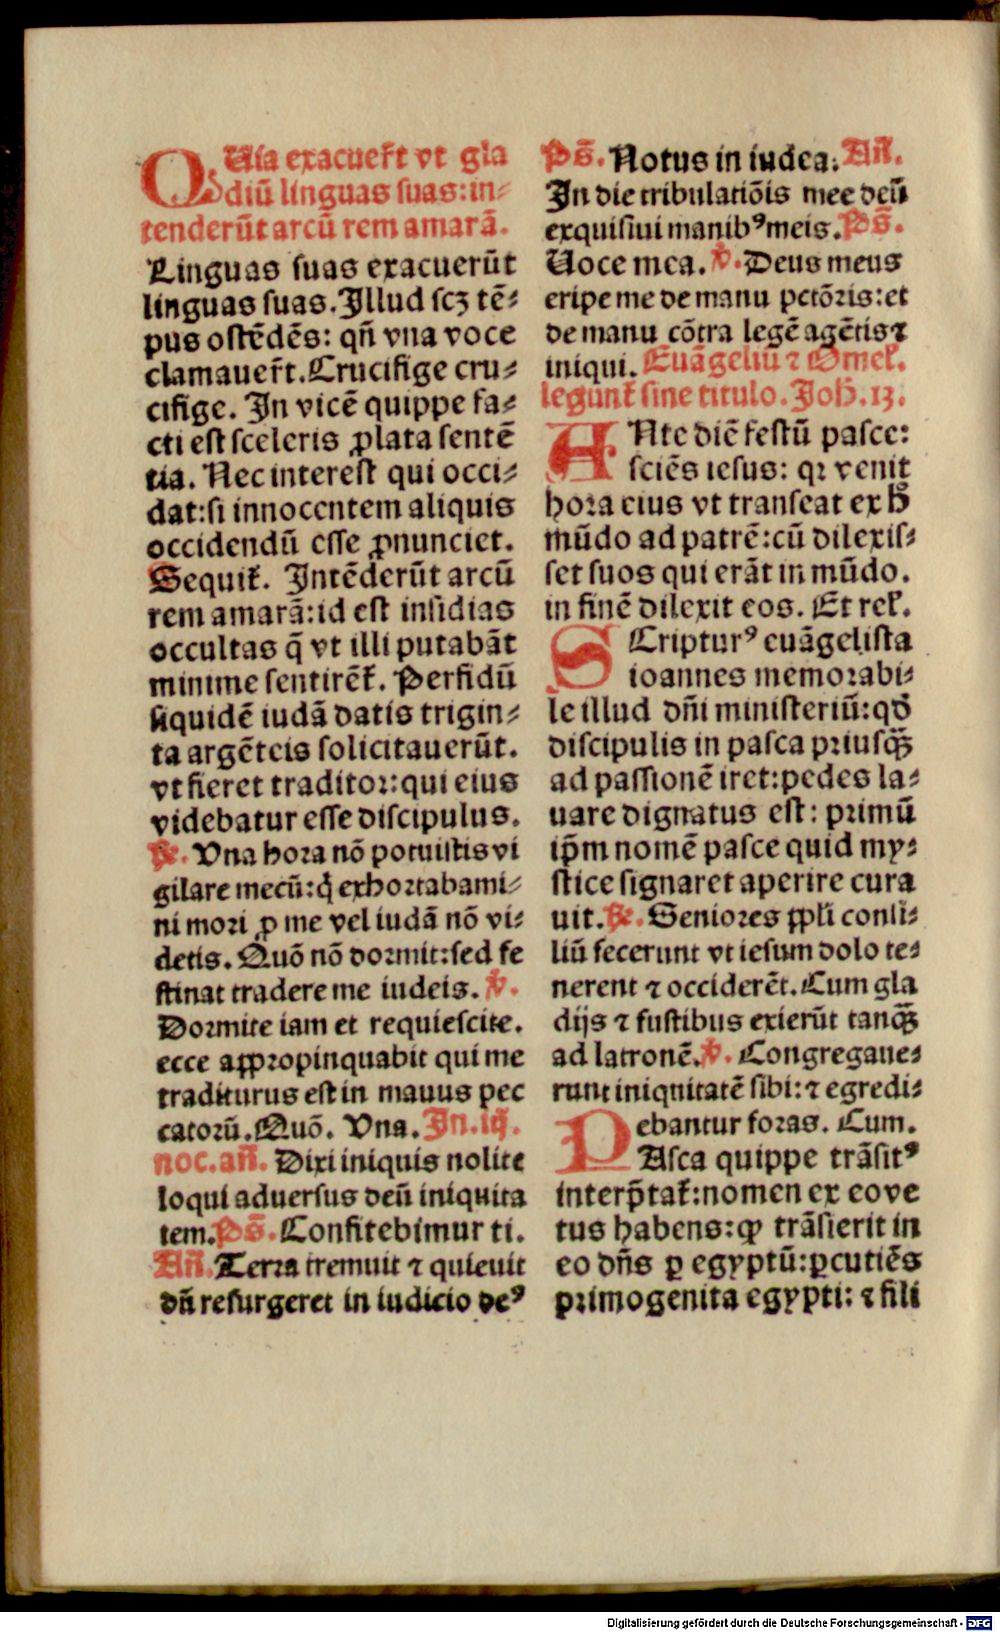 QUia exacuer̄t vt gla
diū linguas ſuas:in⸗
tenderūt arcū rem amarā.
Linguas ſuas exacuerūt
linguas ſuas. Illud ſcꝫ tē⸗
pus oſtēdēs: qn̄ vna voce
clamauer̄t. Crucifige cru⸗
cifige. In vicē quippe fa⸗
cti eſt ſceleris ꝓlata ſentē
tia. Nec intereſt qui occi⸗
dat:ſi innocentem aliquis
occidendū eſſe ꝓnunciet.
Sequit᷑. Intēderūt arcū
rem amarā:id eſt inſidias
occultas q̄ vt illi putabāt
minime ſentirēt᷑. Perfidū
ſiquidē iudā datis trigin⸗
ta argēteis ſolicitauerūt.
vt fieret traditor:qui eius
videbatur eſſe diſcipulus.
℟. Vna hora nō potuiſtis vi
gilare mecū:q̇ exhortabami⸗
ni mori ꝓ me vel iudā nō vi⸗
detis. Quō nō dormit:ſed fe
ſtinat tradere me iudeis. ℣.
Dormite iam et requieſcite.
ecce aꝓpropinquabit qui me
traditurus eſt in manus pec
catorū. Quō. Vna. In. iq̄.
noc. an̄. Dixi iniquis nolite
loqui aduerſus deū iniquita
tem. Ps̄. Confitebimur ti.
An̄. Terra tremuit ⁊ quieuit
dū reſurgeret in iudicio deꝰ
Ps̄. Notus in iudea. An̄.
In die tribulatiōis mee deū
exquiſiui manibꝰ meis. Ps̄.
Voce mea. ℣. Deus meus
eripe me de manu pctōris:et
de manu cōtra legē agētis ⁊
iniqui. Euāgeliū ⁊ Omel᷑.
legunt᷑ ſine titulo. Joh̄. 13.
ANte diē feſtū paſce:
ſciēs ieſus: qꝛ venit
hora eius vt tranſeat ex h̄
mūdo ad patrē:cū dilexiſ⸗
ſet ſuos qui erāt in mūdo.
in finē dilexit eos. Et rel᷑.
SCripturꝰ euāgeliſta
ioannes memorabi⸗
le illud dn̄i miniſteriū:qď
diſcipulis in paſca priuſqꝫ̄
ad paſſionē iret:pedes la⸗
uare dignatus eſt: primū
ip̄m nomē paſce quid my⸗
ſtice ſignaret aperire cura
uit. ℟. Seniores ꝓpl̄i conſi⸗
liū fecerunt vt ieſum dolo te⸗
nerent ⁊ occiderēt. Cum gla
dijs ⁊ fuſtibus exierūt tanqꝫ̄
ad latronē. ℣. Congregaue⸗
runt iniquitatē ſibi: ⁊ egredi⸗
ebantur foras. Cum.
PAſca quippe trāſitꝰ
interp̄tat᷑:nomen ex eo ve
tus habens:ꝙ trāſierit in
eo dn̄s ꝑ egyptū:ꝑcutiēs
primogenita egypti: ⁊ fili
Digitalisierung gefördert durch die Deutsche Forschungsgemeinschaft - DFG